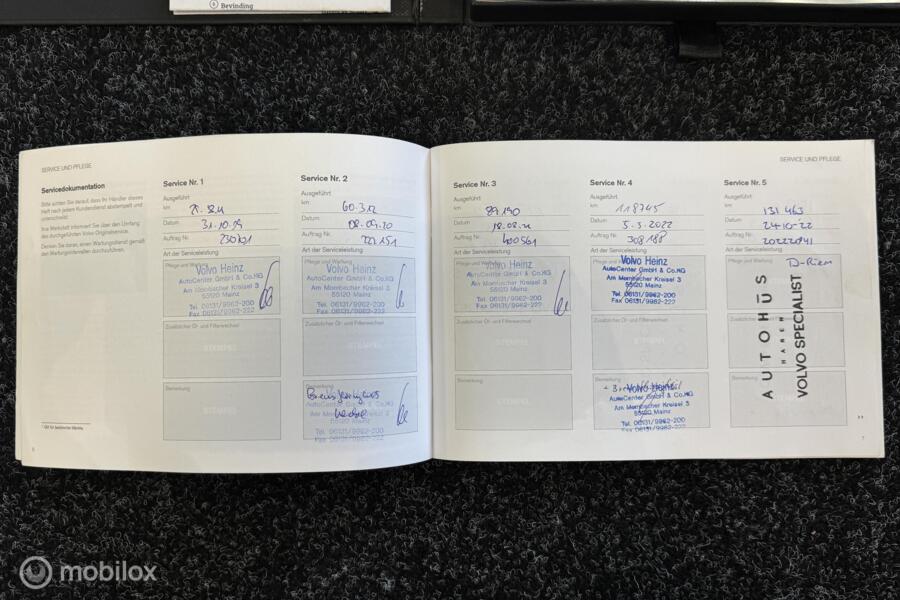 Bevinding
SERVICE UND PFLEGE
Servicedokumentation
Bitte achten Sie darauf, dass Ihr Händler dieses
Heft nach jedem Kundendienst abstempelt und
unterschreibt.
Ihre Werkstatt informiert Sie über den Umfang
des durchgeführten Volvo Originalservice.
Denken Sie daran, einen Wartungsdienst gemäß
den Wartungsintervallen durchzuführen.
6
Service Nr. 1
Ausgeführt
km
Datum 31.10.19
Auftrag Nr.
Art der Serviceleistung
Pflege und Wartung
Volvo Heinz
AutoCenter GmbH & Co.KG
Am Mombacher Kreisel 3
55120 Mainz
Tel. 06131/9962-200
Fax 06131/9962-222
Zusätzlicher Öl- und Filterwechsel
STEMPEL
Bemerkung
STEMPEL
Service Nr. 2
Ausgeführt
km 60.312
Datum 08.09.20
Auftrag Nr.
Art der Serviceleistung
Pflege und Wartung
Volvo Heinz
AutoCenter GmbH & Co.KG
Am Mombacher Kreisel 3
55120 Mainz
Tel. 06131/9962-200
Fax 06131/9962-222
Zusätzlicher Öl- und Filterwechsel
STEMPEL
Bemerkung
AutoCenter GmbH & Co.KG
Am Mombacher Kreisel 3
55120 Mainz
Tel. 06131/9962-200
Fax 06131/9962-222
SERVICE UND PFLEGE
Service Nr. 3
Ausgeführt
km 89.190
Datum 18.08.21
Auftrag Nr. 400561
Art der Serviceleistung
Pflege und Wartung
Volvo Heinz
AutoCenter GmbH & Co.KG
Am Mombacher Kreisel 3
55120 Mainz
Tel. 06131/9962-200
Fax 06131/9962-222
Zusätzlicher Öl- und Filterwechsel
STEMPEL
Bemerkung
STEMPEL
Service Nr. 4
Ausgeführt
km 118745
Datum 5.3.2022
Auftrag Nr. 308188
Art der Serviceleistung
Volvo Heinz
AutoCenter GmbH & Co.KG
Am Mombacher Kreisel 3
55120 Mainz
Tel. 06131/9962-200
Fax 06131/9962-222
Zusätzlicher Öl- und Filterwechsel
STEMPEL
Bemerkung
Volvo Heinz
AutoCenter GmbH & Co.KG
Am Mombacher Kreisel 3
55120 Mainz
Tel. 06131/9962-200
Fax 06131/9962-222
Service Nr. 5
Ausgeführt
km 131 463
Datum 24-10-22
Auftrag Nr.
Art der Serviceleistung
Pflege und Wartung
D-Riem
AUTOHŪS
HAREN
VOLVO SPECIALIST
Bemerkung
7
mobilox